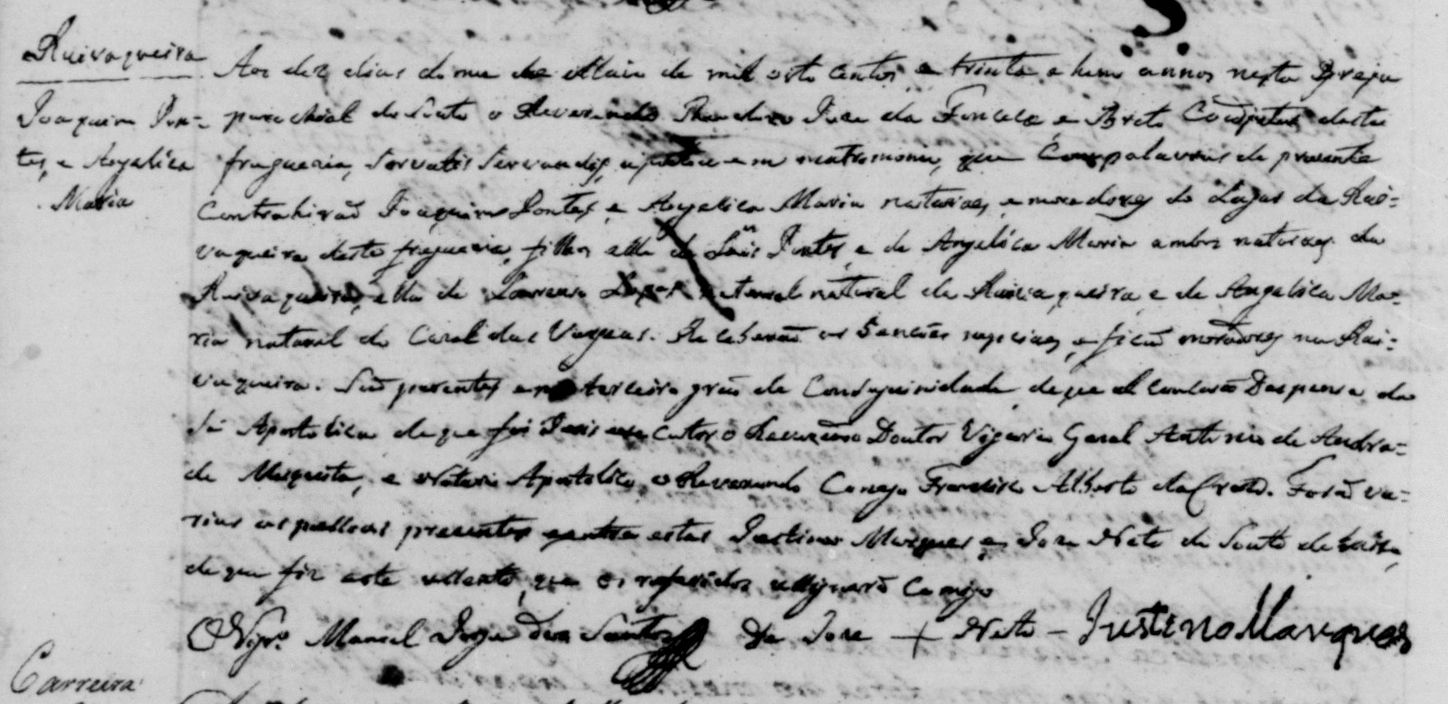 Ruivaqueira
Joaquim Pon-
tes, e Angelica
Maria
Aos dez dias do mez de Maio de mil oito centos, e trinta e hum annos nesta Igreja
parochial do Souto o Reverendo Jose da Fonceca e Brito desta
freguezia, servatis servandis, em matrimonio, que com palavras de prezente
Contrahirão Joaquim Pontes, e Angelica Maria naturaes, e moradores do Lugar da Rui-
vaqueira desta freguezia, filhos elle de Luis Pontes, e de Angelica Maria ambos naturaes da
Ruivaqueira, ella de Lourenso Lopes natural da Ruivaqueira e de Angelica Ma-
ria natural do Casal das Vargeas. Receberão as Bencões nupciaes, e ficão moradores na Rui-
vaqueira. São parentes em terceiro gráo de Consaguinidade de que alcansarão Despensa da
Sé Apostolica de que foi Juis executor o Reverendo Doutor Vigario Geral Antonio de Andra-
de Mesquita, e Notario Apostolico, o Reverendo Conego Francisco Alberto da Costa. Forão va-
rias as pessoas prezentes e entre estas Justino Marques, e Joze Neto do Souto de baixo,
de que fiz este assento, que os referidos assignarão comigo
O Vigr.o Manoel Jorge dos Santos De Joze + Neto - Justino Marques
Carreira